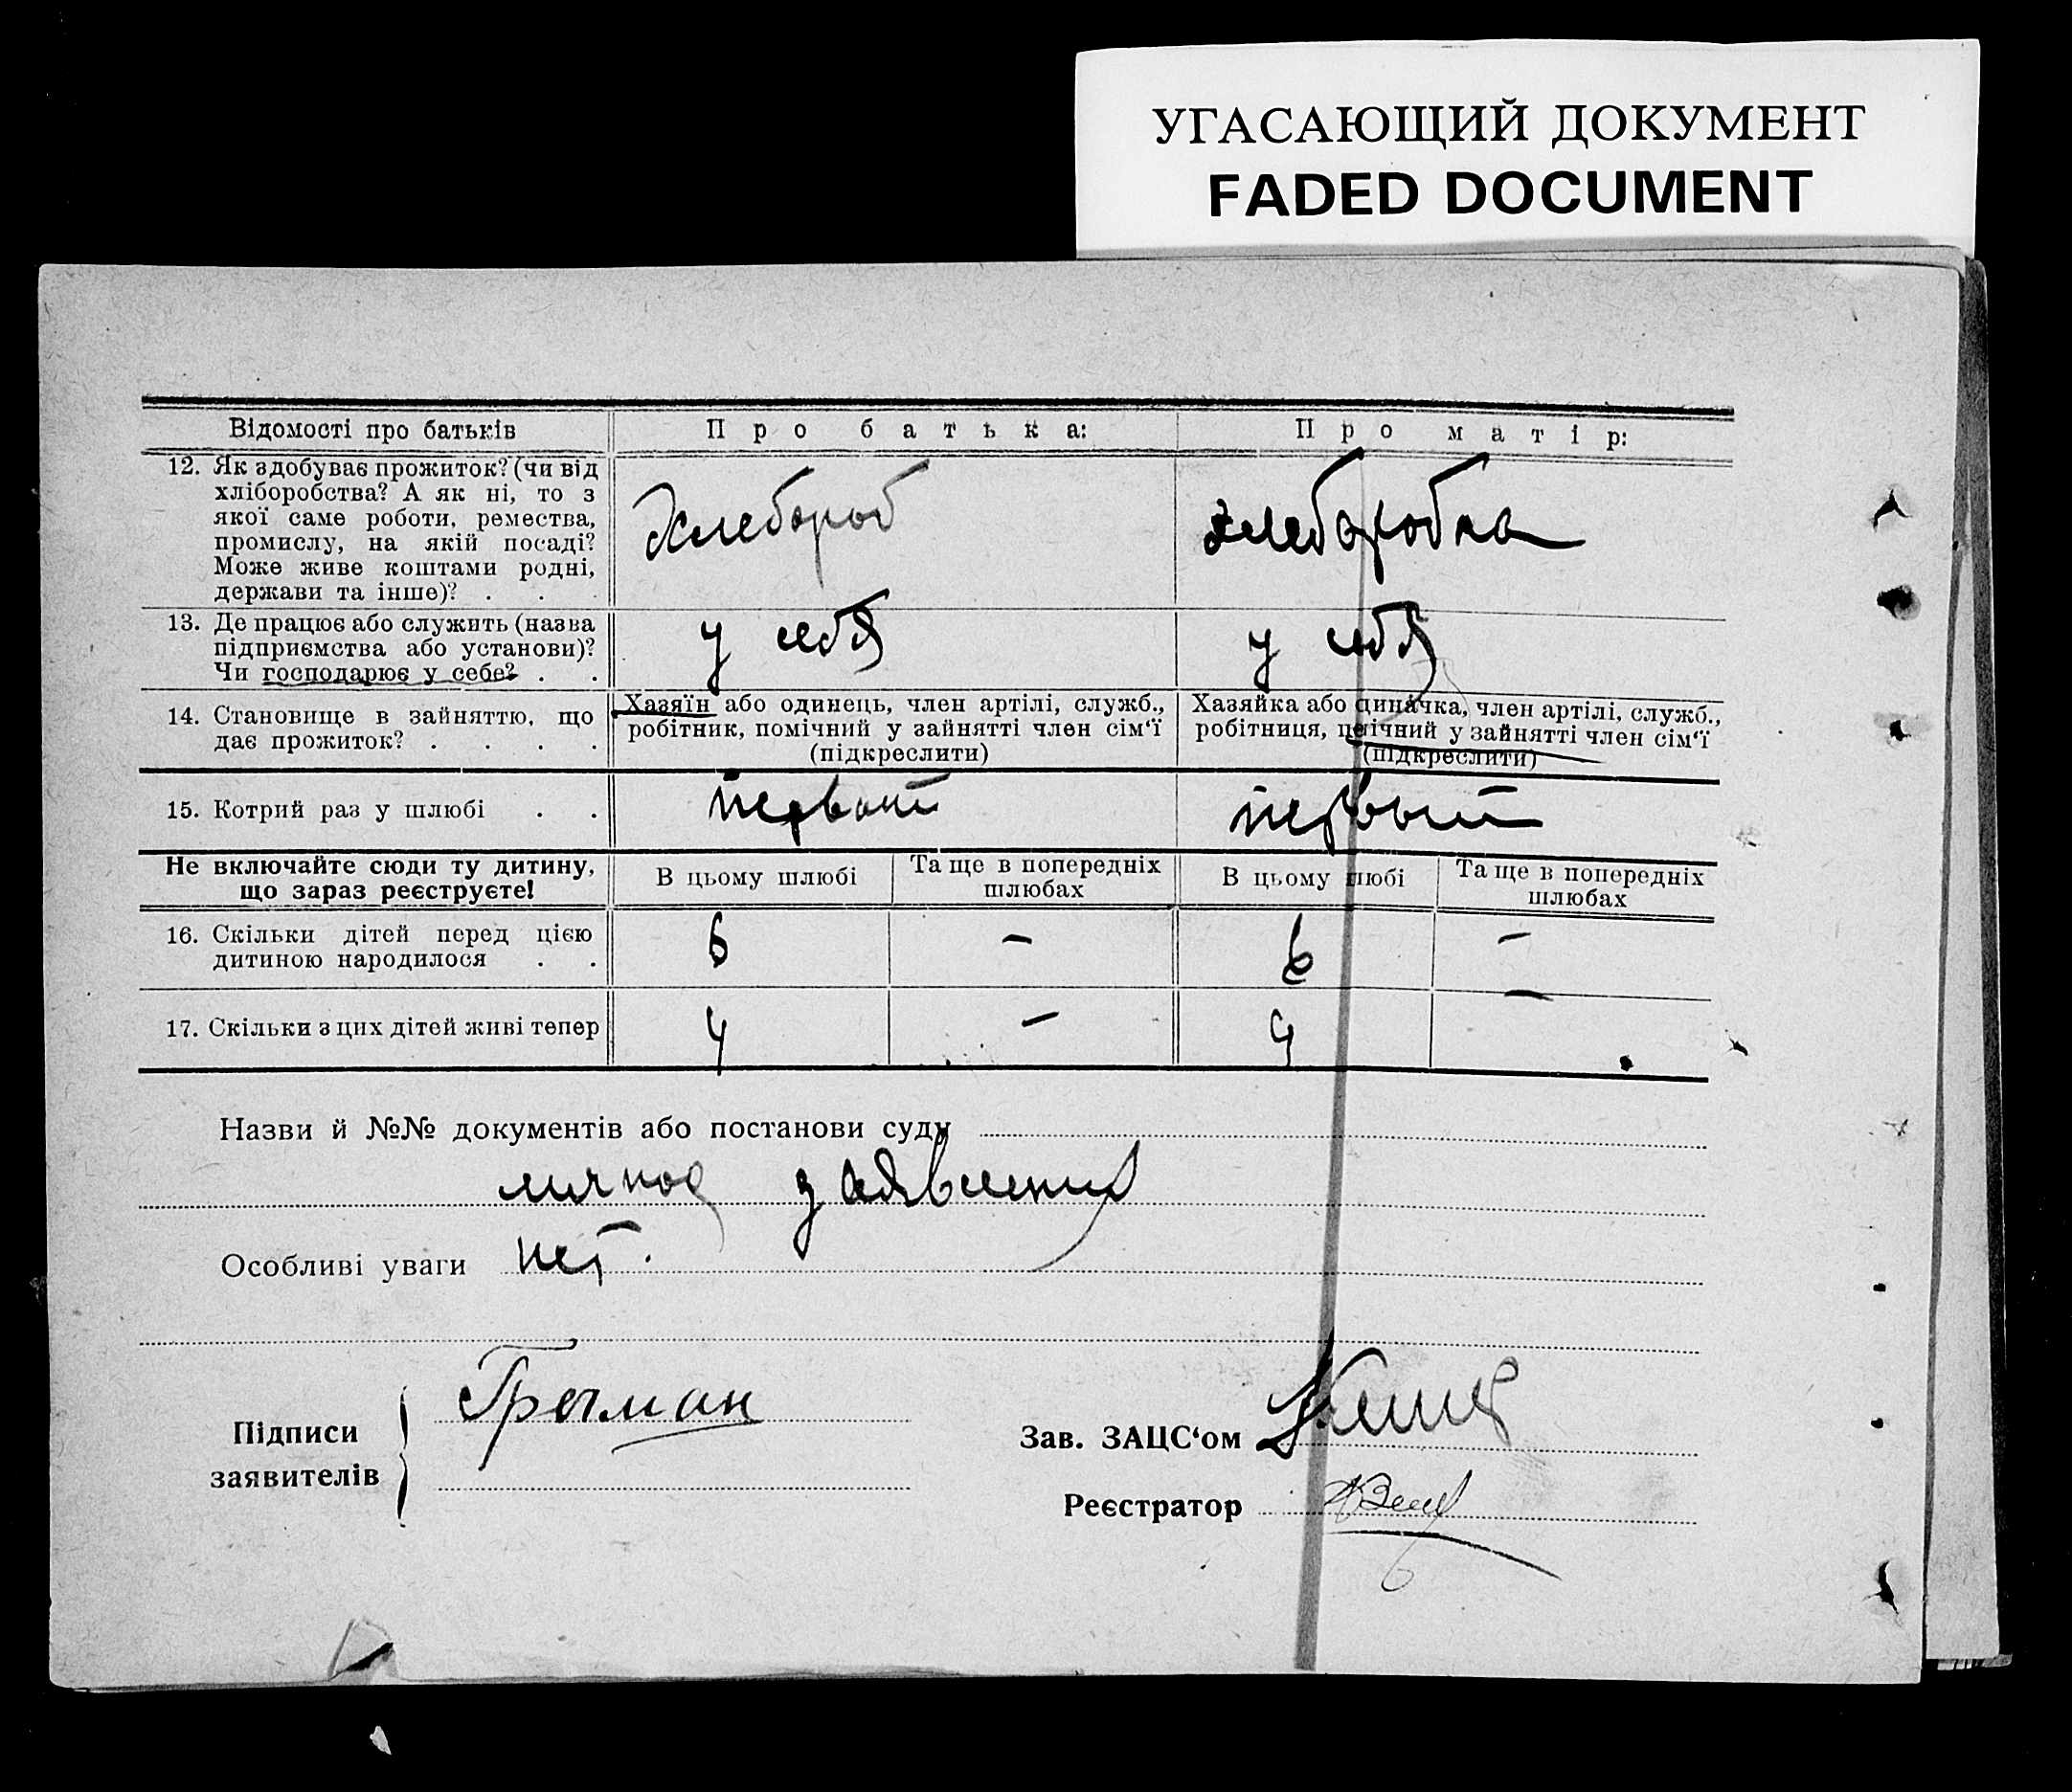 УГАСАЮЩИЙ ДОКУМЕНТ
FADED DOCUMENT
Відомості про батьків
Про батька:
Про матір:
12. Як здобуває прожиток? (чи від
хліборобства? А як ні, то з
якої саме роботи, ремества,
промислу, на якій посаді?
Може живе коштами родні,
держави та інше)? . . .
Хлебороб
хлеборобка
13. Де працює або служить (назва
підприємства або установи)?
Чи господарює у себе? . .
у себя
у себя
14. Становище в зайняттю, що
дає прожиток? . . . .
Хазяїн або одинець, член артілі, служб.,
робітник, помічний у зайнятті член сім‘ї
(підкреслити)
Хазяйка або диначка, член артілі, служб.,
робітниця, у зайнятті член сім‘ї
(підкреслити)
15. Котрий раз у шлюбі . .
первый
первый
Не включайте сюди ту дитину,
що зараз реєструєте!
В цьому шлюбі
Та ще в попередніх
шлюбах
В цьому любі
Та ще в попередніх
шлюбах
16. Скільки дітей перед цією
дитиною народилося . .
6 — 6 —
17. Скільки з цих дітей живі тепер
4 — 4 —
Назви й №№ документів або постанови суду
личное заявления
Особливі уваги нет.
Підписи
заявителів
Грыман
Зав. ЗАЦС‘ом
Реєстратор